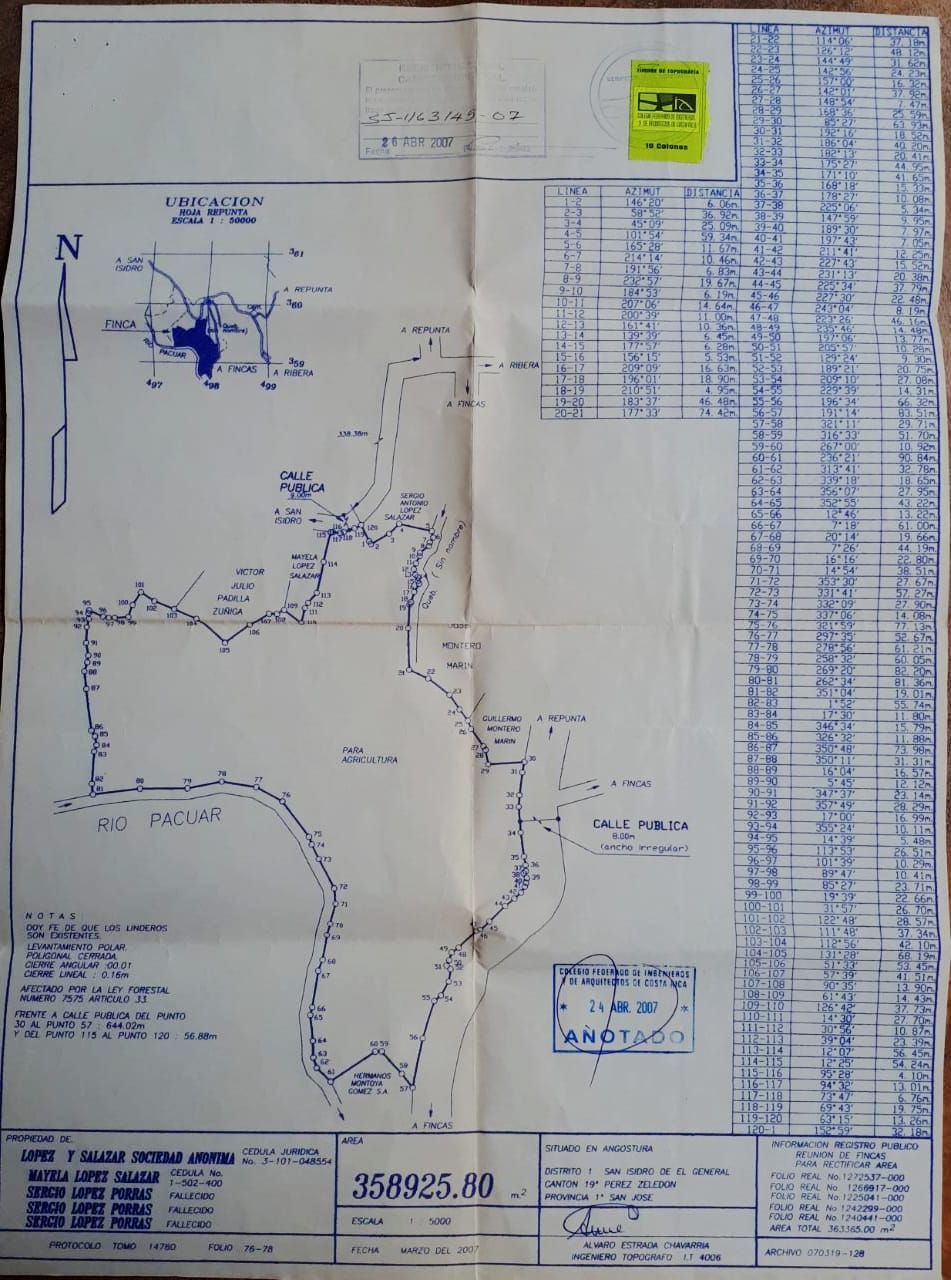 SJ-1163145-07
26 ABR 2007
Fecha
TIMBRE DE TOPOGRAFIA
COLEGIO FEDERADO DE INGENIEROS
Y DE ARQUITECTOS DE COSTA RICA
10 Colones
UBICACION
HOJA REPUNTA
ESCALA 1 : 50000
N
A SAN
ISIDRO
361
A REPUNTA
360
FINCA
RIO
PACUAR
359
A FINCAS
A RIBERA
497 498 499
LINEA AZIMUT DISTANCIA
1-2 146°20' 6.06m
2-3 58°52' 36.92m
3-4 45°09' 25.09m
4-5 101°54' 59.34m
5-6 165°28' 11.67m
6-7 214°14' 10.46m
7-8 191°56' 6.83m
8-9 232°57' 19.67m
9-10 184°53' 6.19m
10-11 207°06' 14.64m
11-12 200°39' 11.00m
12-13 161°41' 10.36m
13-14 139°39' 6.45m
14-15 177°57' 6.28m
15-16 156°15' 5.53m
16-17 209°09' 16.63m
17-18 196°01' 18.90m
18-19 210°51' 4.95m
19-20 183°37' 46.48m
20-21 177°33' 74.42m
LINEA AZIMUT DISTANCIA
21-22 114°06' 37.18m
22-23 126°12' 48.12m
23-24 144°49' 31.62m
24-25 142°56' 24.23m
25-26 157°00' 16.32m
26-27 142°01' 37.92m
27-28 148°54' 7.47m
28-29 168°36' 25.59m
29-30 85°27' 63.93m
30-31 192°16' 18.52m
31-32 186°04' 40.20m
32-33 182°13' 20.41m
33-34 175°27' 44.95m
34-35 171°10' 41.65m
35-36 168°18' 15.33m
36-37 178°27' 10.08m
37-38 225°06' 5.34m
38-39 147°59' 9.95m
39-40 189°30' 7.97m
40-41 197°43' 7.05m
41-42 211°41' 12.25m
42-43 227°43' 15.52m
43-44 231°13' 20.38m
44-45 225°34' 37.79m
45-46 227°30' 22.48m
46-47 243°04' 8.19m
47-48 223°26' 46.16m
48-49 235°46' 14.48m
49-50 197°06' 13.77m
50-51 205°57' 12.28m
51-52 129°24' 9.30m
52-53 189°21' 20.75m
53-54 209°10' 27.08m
54-55 229°39' 14.31m
55-56 196°34' 66.32m
56-57 191°14' 83.51m
57-58 321°11' 29.71m
58-59 316°33' 51.70m
59-60 267°00' 10.92m
60-61 236°21' 90.84m
61-62 313°41' 32.78m
62-63 339°18' 18.65m
63-64 356°07' 27.95m
64-65 352°55' 43.22m
65-66 12°46' 13.22m
66-67 7°18' 61.00m
67-68 20°14' 19.66m
68-69 7°26' 44.19m
69-70 16°16' 22.80m
70-71 14°54' 38.51m
71-72 353°30' 27.67m
72-73 331°41' 57.27m
73-74 332°09' 27.90m
74-75 337°06' 14.08m
75-76 321°59' 77.13m
76-77 297°35' 52.67m
77-78 278°56' 61.21m
78-79 258°32' 60.05m
79-80 269°20' 82.20m
80-81 262°34' 81.36m
81-82 351°04' 19.01m
82-83 1°52' 55.74m
83-84 17°30' 11.80m
84-85 346°34' 15.79m
85-86 326°32' 11.88m
86-87 350°48' 73.98m
87-88 350°11' 31.31m
88-89 16°04' 16.57m
89-90 5°45' 12.12m
90-91 347°37' 23.14m
91-92 357°49' 28.29m
92-93 17°00' 16.99m
93-94 355°24' 10.11m
94-95 14°39' 5.48m
95-96 113°53' 26.51m
96-97 101°39' 10.29m
97-98 89°47' 10.41m
98-99 85°27' 23.71m
99-100 19°39' 22.66m
100-101 31°57' 26.70m
101-102 122°48' 28.57m
102-103 111°48' 37.34m
103-104 112°56' 42.10m
104-105 131°28' 68.19m
105-106 51°33' 53.45m
106-107 57°39' 41.51m
107-108 90°35' 13.90m
108-109 61°43' 14.43m
109-110 126°42' 37.73m
110-111 14°30' 27.70m
111-112 30°56' 10.87m
112-113 39°04' 23.39m
113-114 12°07' 56.45m
114-115 12°25' 54.24m
115-116 95°28' 4.10m
116-117 94°32' 13.01m
117-118 73°47' 6.76m
118-119 69°43' 19.75m
119-120 63°15' 13.26m
120-1 152°59' 32.18m
A REPUNTA
A RIBERA
A FINCAS
338.38m
CALLE
PUBLICA
9.00m
A SAN
ISIDRO
SERGIO
ANTONIO
LOPEZ
SALAZAR
Queb. (Sin nombre)
MAYELA
LOPEZ
SALAZAR
VICTOR
JULIO
PADILLA
ZUÑIGA
JOSE
MONTERO
MARIN
GUILLERMO
MONTERO
MARIN
A REPUNTA
A FINCAS
PARA
AGRICULTURA
CALLE PUBLICA
8.00m
(ancho irregular)
RIO PACUAR
NOTAS:
DOY FE DE QUE LOS LINDEROS
SON EXISTENTES.
LEVANTAMIENTO POLAR.
POLIGONAL CERRADA.
CIERRE ANGULAR :00.01
CIERRE LINEAL : 0.16m
AFECTADO POR LA LEY FORESTAL
NUMERO 7575 ARTICULO 33.
FRENTE A CALLE PUBLICA DEL PUNTO
30 AL PUNTO 57 : 644.02m
Y DEL PUNTO 115 AL PUNTO 120 : 56.88m
HERMANOS
MONTOYA
GOMEZ S.A.
A FINCAS
COLEGIO FEDERADO DE INGENIEROS
Y DE ARQUITECTOS DE COSTA RICA
* 24 ABR. 2007 *
ANOTADO
PROPIEDAD DE.
LOPEZ Y SALAZAR SOCIEDAD ANONIMA CEDULA JURIDICA
No. 3-101-048554
MAYELA LOPEZ SALAZAR CEDULA No.
1-502-400
SERGIO LOPEZ PORRAS FALLECIDO
SERGIO LOPEZ PORRAS FALLECIDO
SERGIO LOPEZ PORRAS FALLECIDO
PROTOCOLO TOMO 14780 FOLIO 76-78
AREA
358925.80 m2
ESCALA 1 : 5000
FECHA MARZO DEL 2007
SITUADO EN ANGOSTURA
DISTRITO 1 SAN ISIDRO DE EL GENERAL
CANTON 19º PEREZ ZELEDON
PROVINCIA 1º SAN JOSE
ALVARO ESTRADA CHAVARRIA
INGENIERO TOPOGRAFO I.T 4006
INFORMACION REGISTRO PUBLICO
REUNION DE FINCAS
PARA RECTIFICAR AREA
FOLIO REAL No.1272537-000
FOLIO REAL No 1266917-000
FOLIO REAL No.1225041-000
FOLIO REAL No.1242299-000
FOLIO REAL No.1240441-000
AREA TOTAL 363365.00 m2
ARCHIVO 070319-128